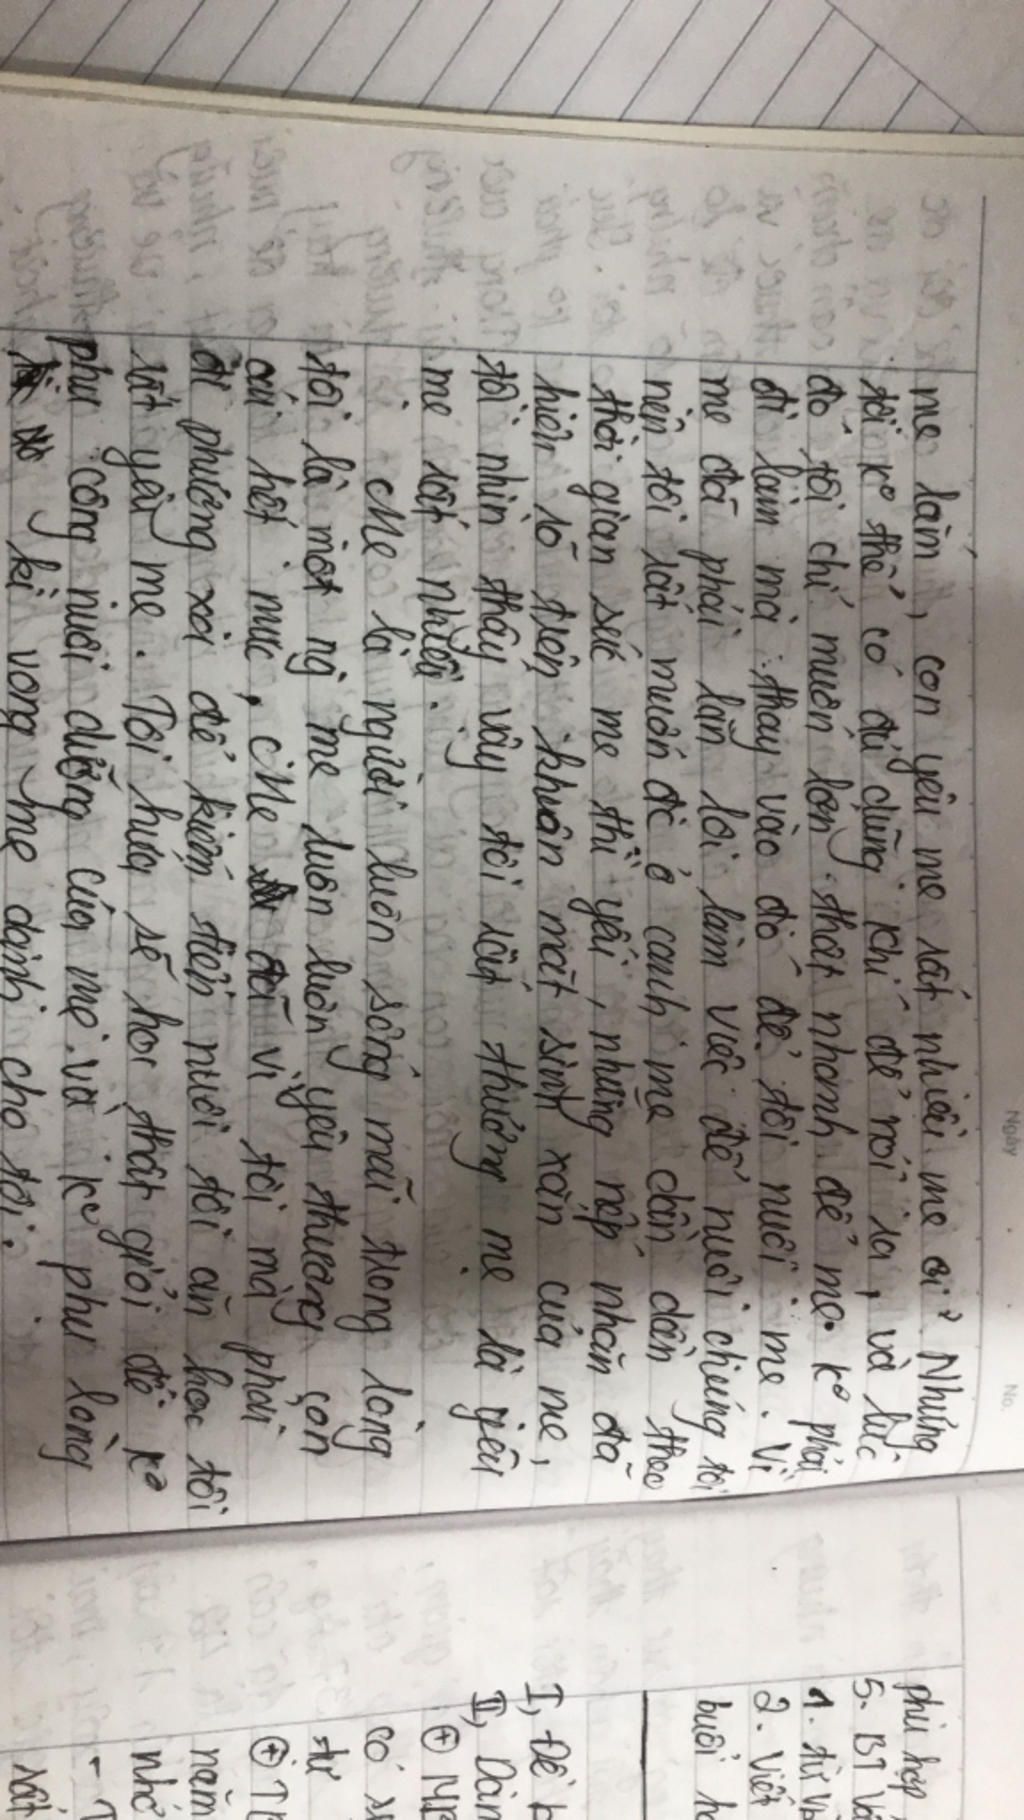 Ngày
No.
mẹ lắm, con yêu mẹ rất nhiều mẹ ơi? Nhưng
tôi k° thể có đủ dũng khí để nói ra, và lúc
đó tôi chỉ muốn lớn thật nhanh để mẹ k° phải
đi làm mà thay vào đó để tôi nuôi mẹ. Vì
mẹ đã phải lặn lội làm việc để nuôi chúng tôi
nên tôi rất muốn đc ở cạnh mẹ dần dần theo
thời gian sức mẹ thì yếu, những nếp nhăn đã
hiện rõ trên khuôn mặt sinh xắn của mẹ,
tôi nhìn thấy vậy tôi rất thương mẹ là yêu
mẹ rất nhiều.
Mẹ là người luôn sống mãi trong lòng
tôi là một ng mẹ luôn luôn yêu thương con
cái hết mực, Mẹ đã vì tôi mà phải
đi phương xa để kiếm tiền nuôi tôi ăn học tôi
rất yêu mẹ. Tôi hứa sẽ học thật giỏi để k°
phụ công nuôi dưỡng của mẹ và k° phụ lòng
kì vọng mẹ dành cho tôi.
phù hợp
5. BT
1. từ
2. Viết
buổi
I, Đề
II, Dàn
⊕
có
từ
⊕
năm
nhớ
rất